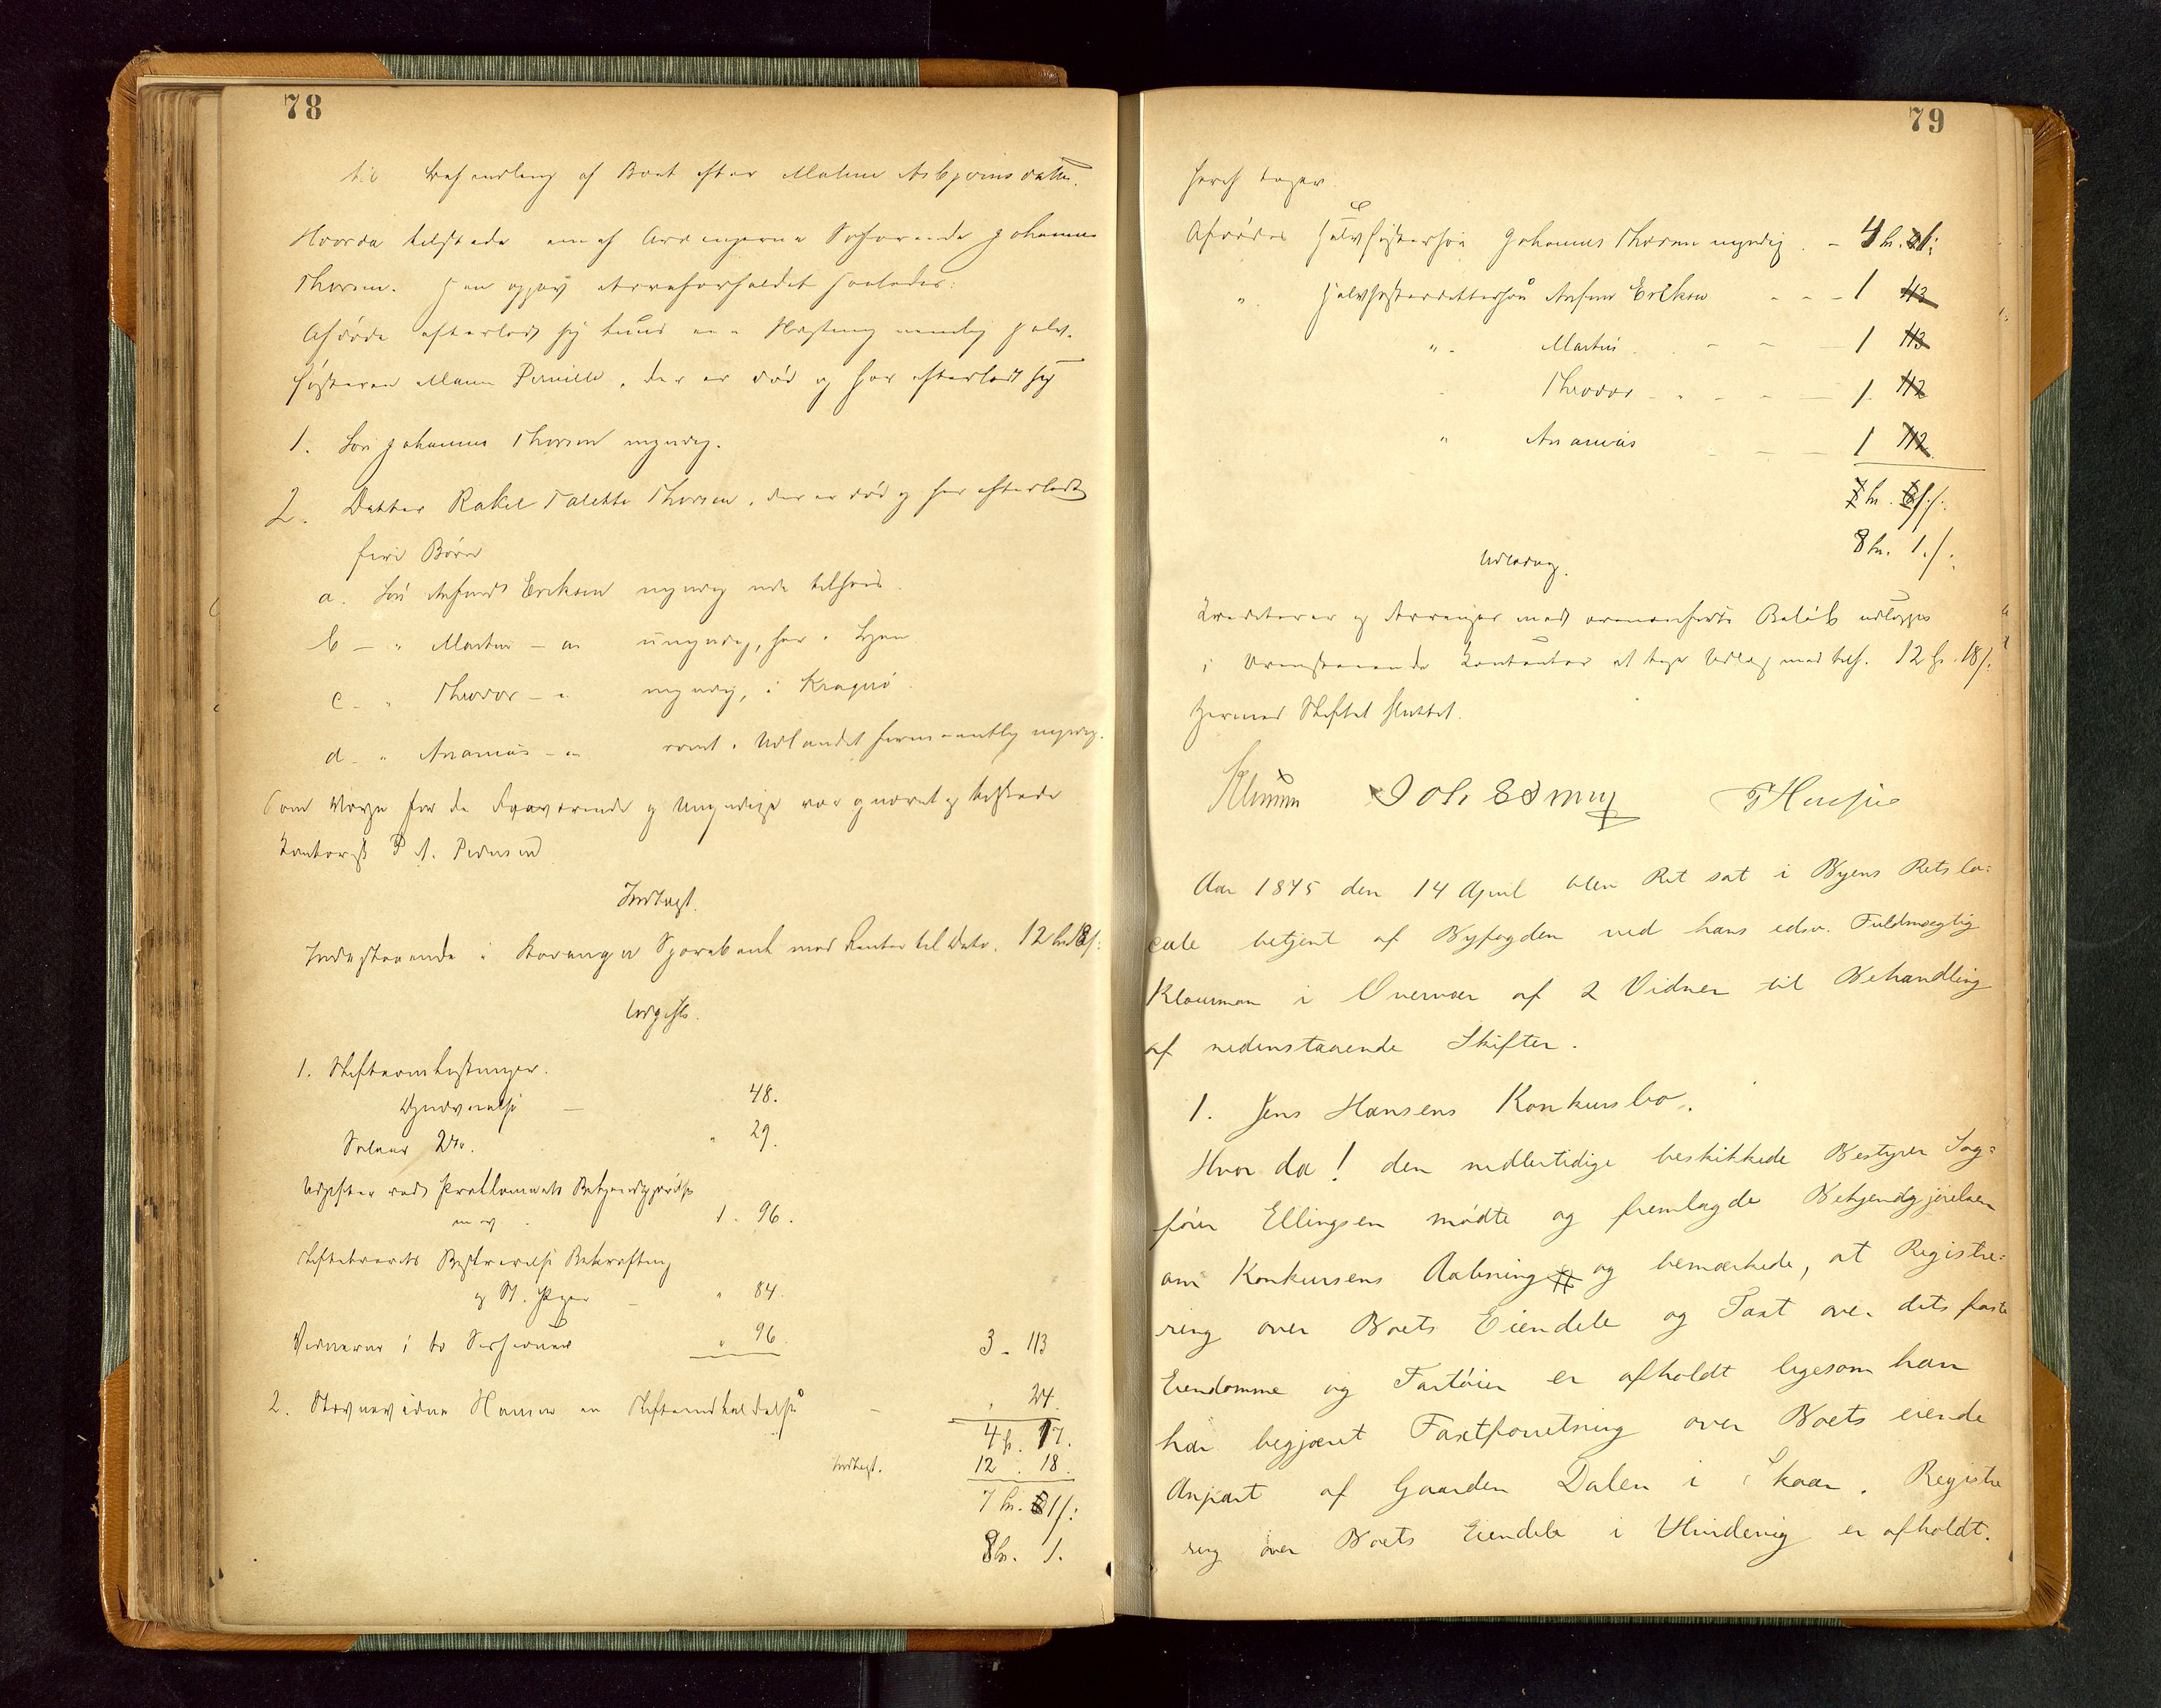 78
til Behandling af Boet efter Malene Asbjørnsdatter.
Hvorda tilstede een af Arvingerne Søfarende Johannes
Thorsen. Han opgav Arveforholdet saaledes:
Afdøde efterlod sig kuns een Slægtning nemlig halv-
søsteren Maren Pernille, der er død og har efterladt sig
1. Søn Johannes Thorsen myndig.
2. Datter Rakel Talette Thorsen, der er død og har efterladt
fire Børn
a. Søn Anfind Eriksen myndig ude tilsøes.
b — " Martin — en umyndig, her i Byen
c — " Theodor — " myndig, i Kragerø
d — " Ananias — en rømt i Udlandet formeentlig myndig.
Som Værge for de Fraværende og Umyndige var nævnt og tilstede
Kontorist P. A. Pedersen
Indtægt.
Indestaaende i Stavanger Sparebank med Renter til Dato. 12 Sp 18 s:
Udgift.
1. Skifteomkostninger.
48.
Salair 2%. " 29.
Udgifter ved Proklamaets Bekjendtgjørelse
m. v. 1. 96.
Skiftebrevets Beskrivelse Bekræftelse
" 84.
Vidnerne i to Sessioner " 96. 3 - 113
2. Stævnevidne Hansen en Skifteindkaldelse — " 24.
4 Sp. 17.
Indtægt. 12 . 18.
7
8 Sp. 1.
79
heraf tager
Afdødes halvsøstersøn Johannes Thorsen myndig . - 4
" halvsøsterdattersøn Anfind Eriksen - - - 1 113
" - Martin - - — 1 113
Theodor - - - — 1. 112
" Ananias - — — 1 112.
8 Sp. 1 s:
Udlodning.
Kreditorer og Arvinger med ovenanførte Beløb udlægges
i ovenstaaende Kontanter at tage Udlæg med tils. 12 Sp. 18 s:
Hermed Skiftet sluttet.
Aar 1875 den 14 April blev Ret sat i Byens Retslo-
cale betjent af Byfogden ved hans edsv. Fuldmægtig
Klouman i Overvær af 2 Vidner til Behandling
af nedenstaaende Skifter.
1. Jens Hansens Konkursbo.
Hvor da! den midlertidige beskikkede Bestyrer Sag-
fører Ellingsen mødte og fremlagde Bekjendtgjørelsen
om Konkursens Aabning og bemærkede, at Registre-
ring over Boets Eiendele og Taxt over dets faste
Eiendomme og Fartøier er afholdt ligesom han
har begjæret Taxtforretning over Boets eiende
Anpart af Gaarden Dalen i Skaar. Registre
ring over Boets Eiendele i Hindevig er afholdt.